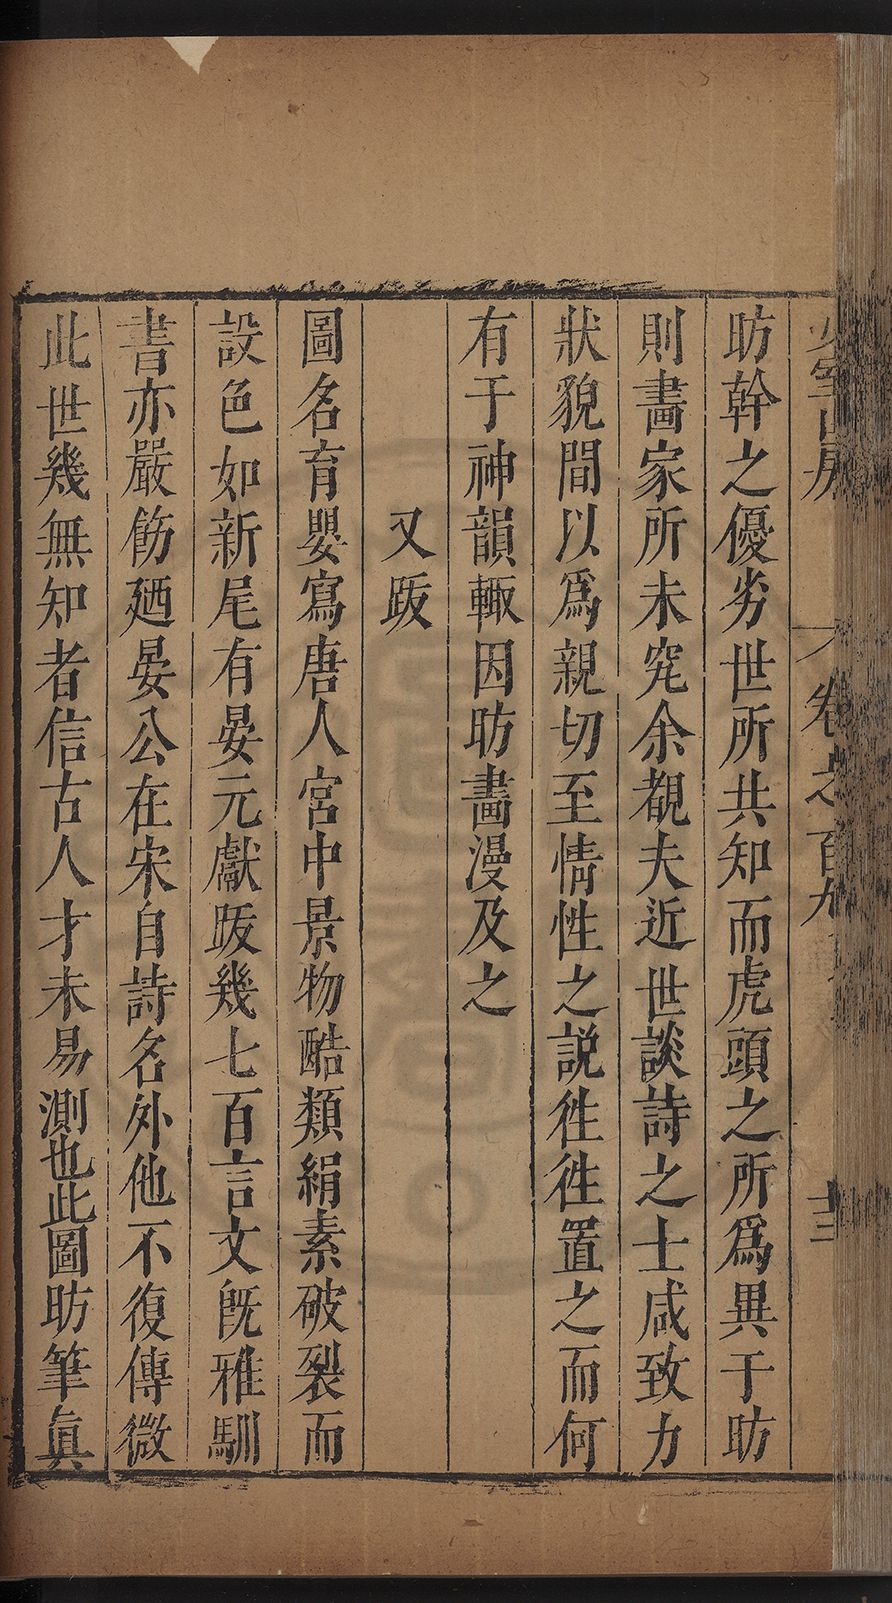 少室山房
卷之一百九
十三
昉幹之優劣世所共知而虎頭之所爲異于昉
則畫家所未究余覩夫近世談詩之士咸致力
狀貌間以爲親切至情性之説徃徃置之而何
有于神韻輙因昉畫漫及之
又䟦
圖名育嬰寫唐人宮中景物酷類絹素破裂而
設色如新尾有晏元獻䟦幾七百言文旣雅馴
書亦嚴飭廼晏公在宋自詩名外他不復傳微
此世幾無知者信古人才未易測也此圖昉筆眞